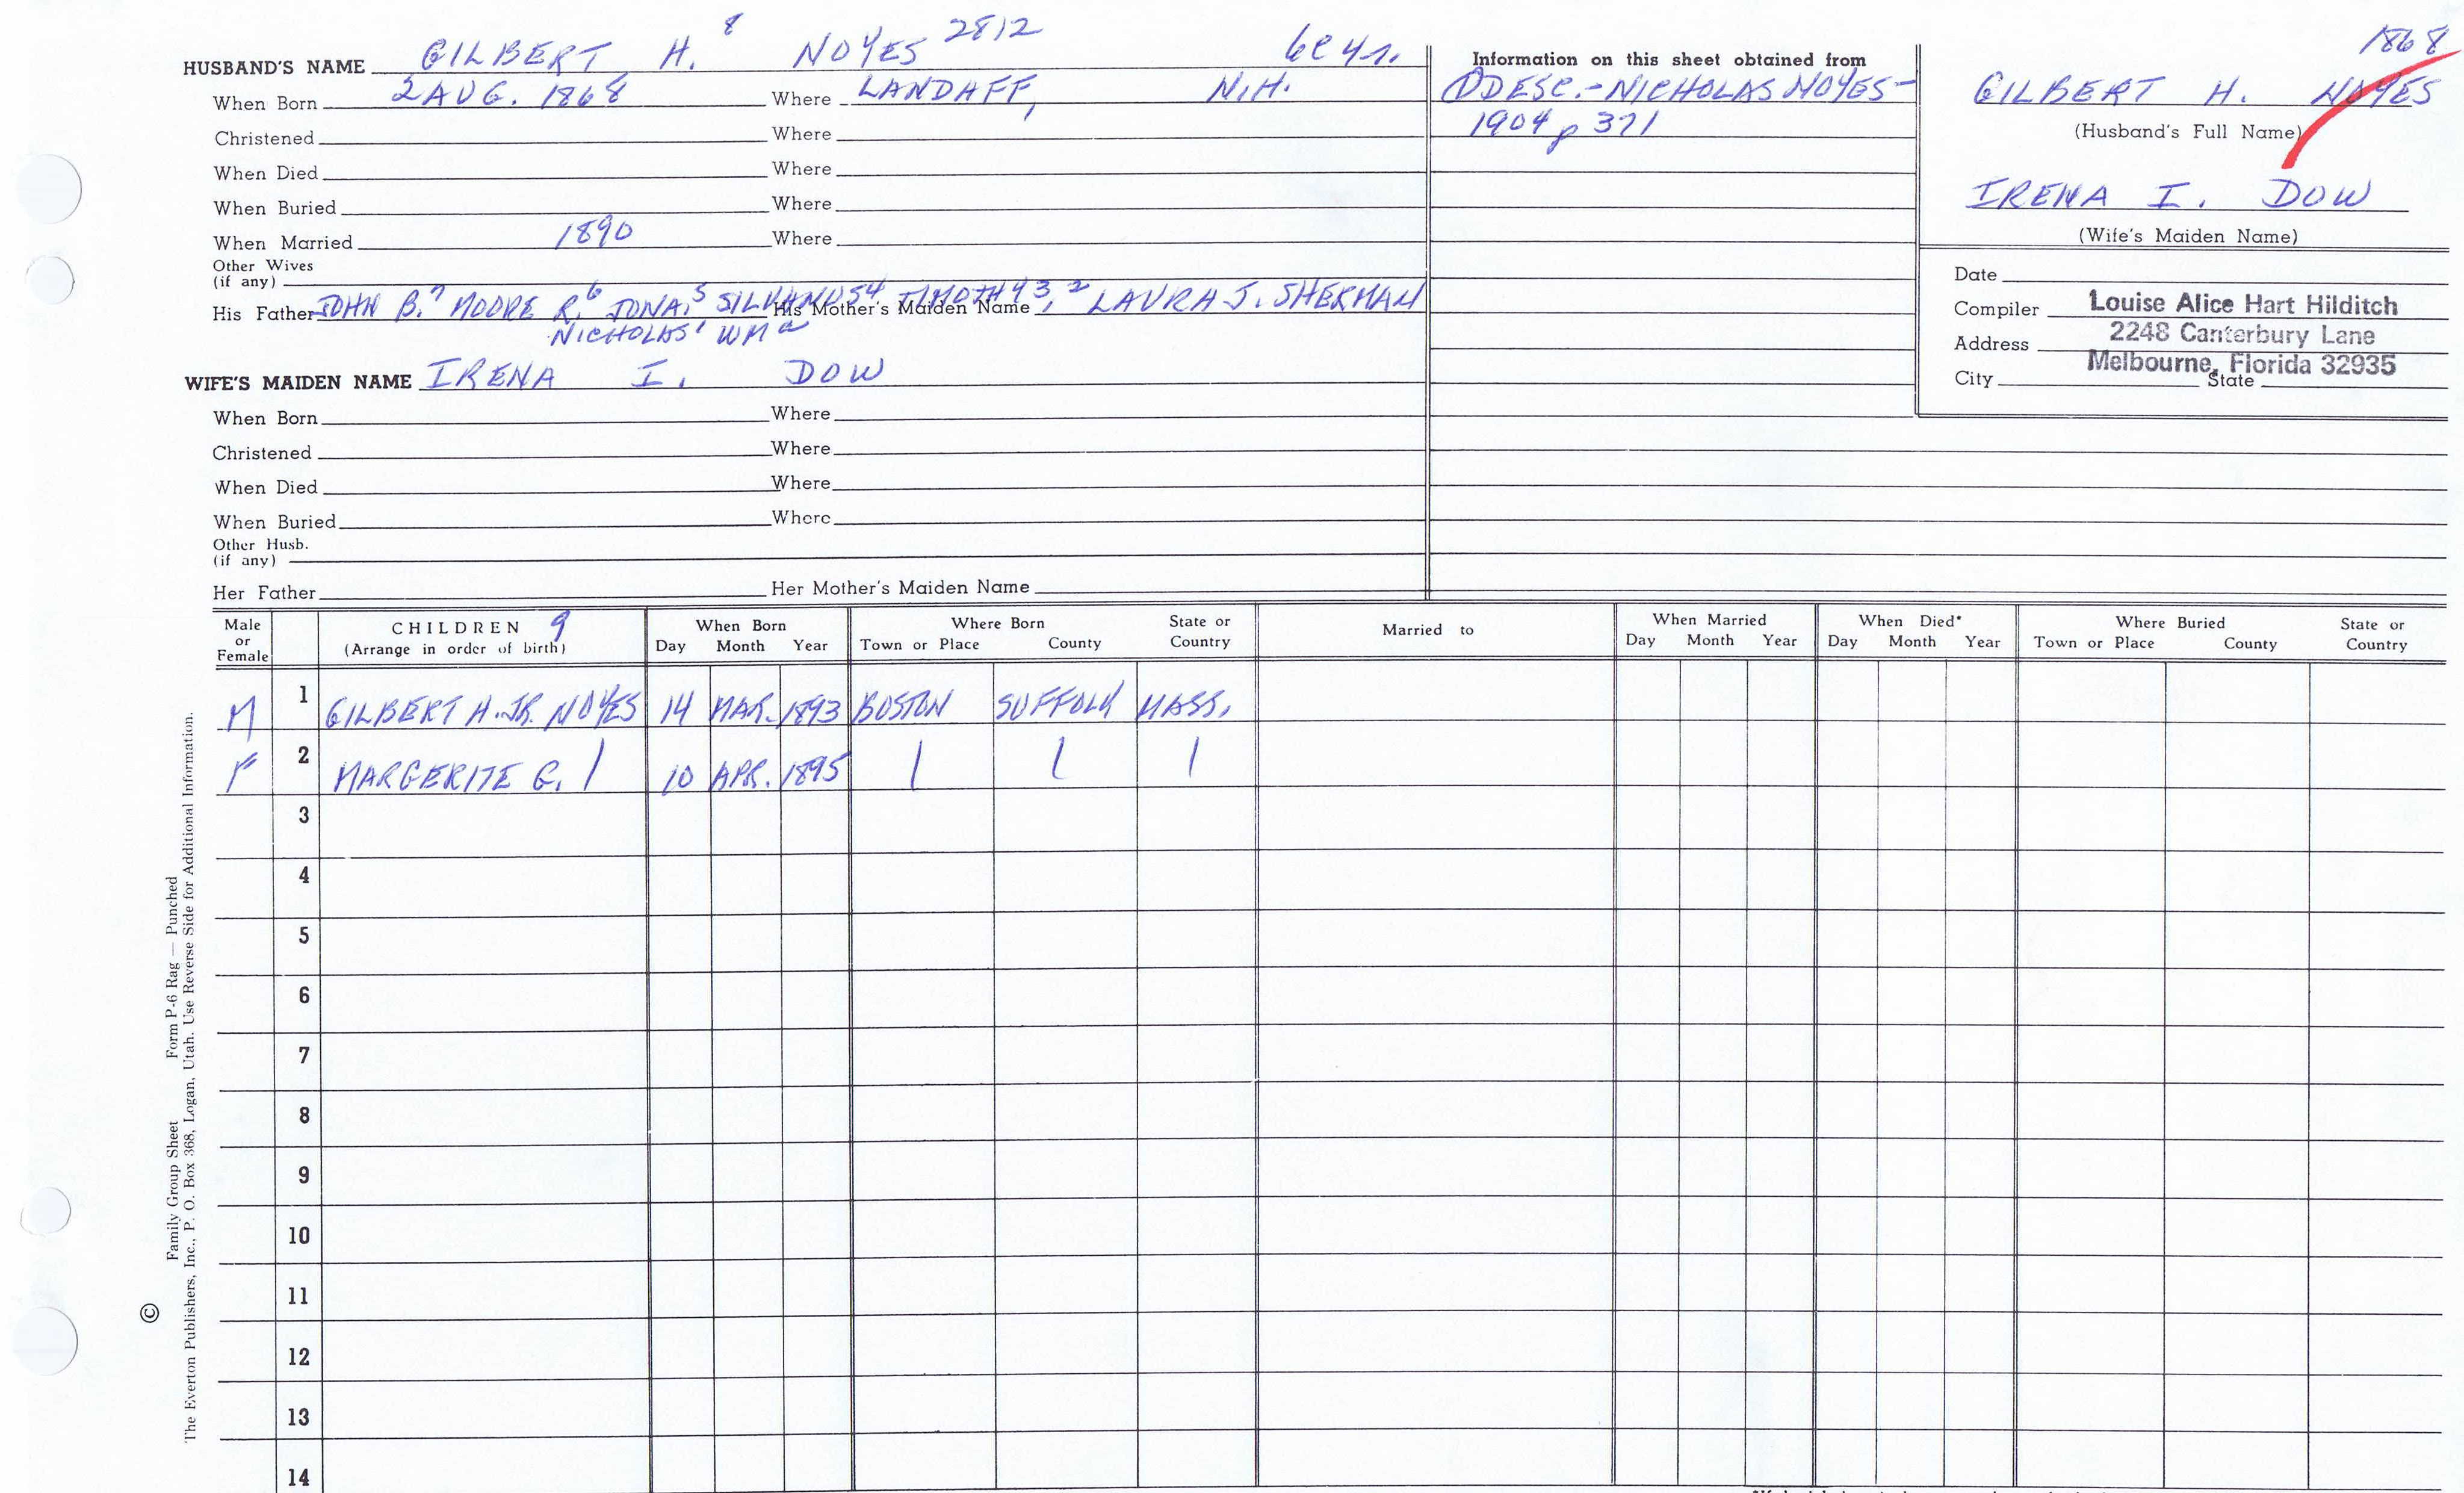 HUSBAND'S NAME GILBERT H. 8 NOYES 2812
When Born 2 AUG. 1868 Where LANDAFF, N.H.
Christened Where
When Died Where
When Buried Where
When Married 1890 Where
Other Wives
(if any)
His Father JOHN B.7 MOORE R.6 JONA.5 SILVANUS4 TIMOTHY3,2 His Mother's Maiden Name LAURA J. SHERMAN
NICHOLAS1 WMa
WIFE'S MAIDEN NAME IRENA I. DOW
When Born Where
Christened Where
When Died Where
When Buried Where
Other Husb.
(if any)
Her Father Her Mother's Maiden Name
Information on this sheet obtained from
DESC.-NICHOLAS NOYES-
1904 p 371
1868
GILBERT H. NOYES
(Husband's Full Name)
IRENA I. DOW
(Wife's Maiden Name)
Date
Compiler Louise Alice Hart Hilditch
Address 2248 Canterbury Lane
Melbourne, Florida 32935
City State
Male or Female CHILDREN 9 (Arrange in order of birth) When Born Day Month Year Where Born Town or Place County State or Country Married to When Married Day Month Year When Died* Day Month Year Where Buried Town or Place County State or Country
M 1 GILBERT H. JR. NOYES 14 MAR. 1893 BOSTON SUFFOLK MASS.
F 2 MARGERITE G. | 10 APR. 1895 | | |
3
4
5
6
7
8
9
10
11
12
13
14
©
Family Group Sheet Form P-6 Rag — Punched
The Everton Publishers, Inc., P. O. Box 368, Logan, Utah. Use Reverse Side for Additional Information.